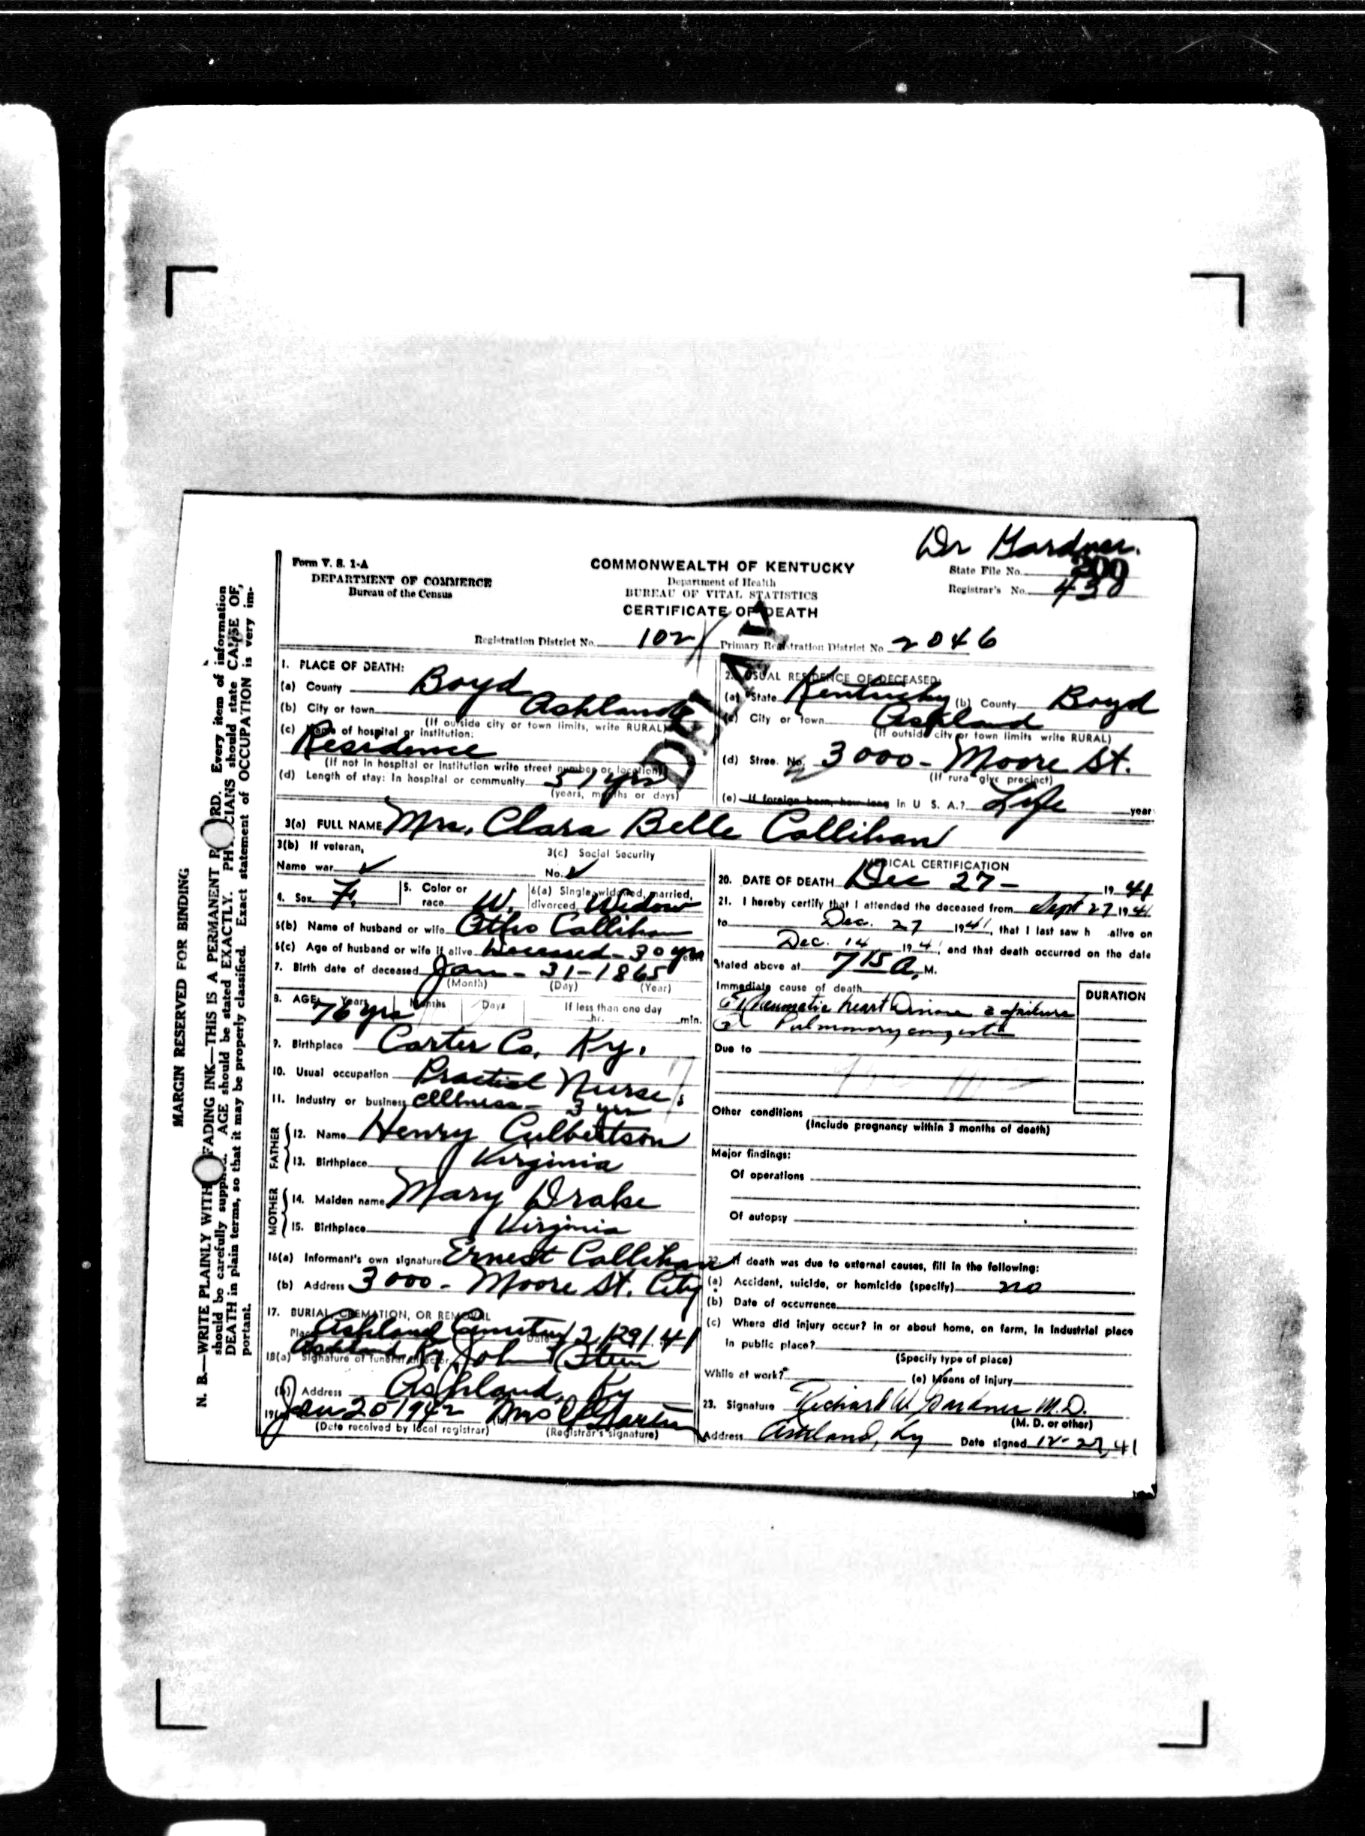 Dr Gardner.
Form V. S. 1-A
DEPARTMENT OF COMMERCE
Bureau of the Census
COMMONWEALTH OF KENTUCKY
Department of Health
BUREAU OF VITAL STATISTICS
CERTIFICATE OF DEATH
State File No. 200
Registrar's No. 430
Registration District No. 102
Primary Registration District No. 2046
DELAY
1. PLACE OF DEATH:
(a) County Boyd
(b) City or town Ashland
(If outside city or town limits, write RURAL)
(c) Name of hospital or institution:
Residence
(If not in hospital or institution write street number or location)
(d) Length of stay: In hospital or community 51 yrs
(years, months or days)
2. USUAL RESIDENCE OF DECEASED
(a) State Kentucky (b) County Boyd
(c) City or town Ashland
(If outside city or town limits write RURAL)
(d) Street No. 3000 - Moore St.
(If rural give precinct)
(e) If foreign born, how long in U S. A.? Life year
3(a) FULL NAME Mrs. Clara Belle Callihan
3(b) If veteran,
Name war ✓
3(c) Social Security
No. ✓
4. Sex F. 5. Color or race W. 6(a) Single, widowed, married, divorced, Widow
6(b) Name of husband or wife Otho Callihan
6(c) Age of husband or wife if alive Deceased - 30 yrs
7. Birth date of deceased Jan - 31 - 1865
(Month) (Day) (Year)
8. AGE: Years Months Days If less than one day
76 yrs hr. min.
9. Birthplace Carter Co. Ky.
10. Usual occupation Practical Nurse.
11. Industry or business illness - 3 yrs
FATHER
12. Name Henry Culbertson
13. Birthplace Virginia
MOTHER
14. Maiden name Mary Drake
15. Birthplace Virginia
16(a) Informant's own signature Ernest Callihan
(b) Address 3000 - Moore St. City
17. BURIAL, CREMATION, OR REMOVAL
Place Ashland Cemetery Date 12/29/41
Ashland Ky
18(a) Signature of funeral director John Steen
(b) Address Ashland, Ky
19(a) Jan 20 1942 Mrs
(Date received by local registrar) (Registrar's signature)
MEDICAL CERTIFICATION
20. DATE OF DEATH Dec 27 - 19 41
21. I hereby certify that I attended the deceased from Sept 27, 19 41
to Dec. 27 19 41, that I last saw h alive on
Dec. 14 19 41, and that death occurred on the date
Stated above at 7 15 A. M.
Immediate cause of death
DURATION
Rheumatic heart Disease failure
Pulmonary
Due to
Other conditions
(Include pregnancy within 3 months of death)
Major findings:
Of operations
Of autopsy
22. If death was due to external causes, fill in the following:
(a) Accident, suicide, or homicide (specify) no
(b) Date of occurrence
(c) Where did injury occur? in or about home, on farm, in industrial place
in public place?
(Specify type of place)
While at work? (e) Means of injury
23. Signature Richard W. Gardner M.D.
(M. D. or other)
Address Ashland, Ky Date signed 12-27, 41
MARGIN RESERVED FOR BINDING
N. B.—WRITE PLAINLY WITH FADING INK—THIS IS A PERMANENT RECORD. Every item of information
should be carefully supplied. AGE should be stated EXACTLY. PHYSICIANS should state CAUSE OF
DEATH in plain terms, so that it may be properly classified. Exact statement of OCCUPATION is very im-
portant.